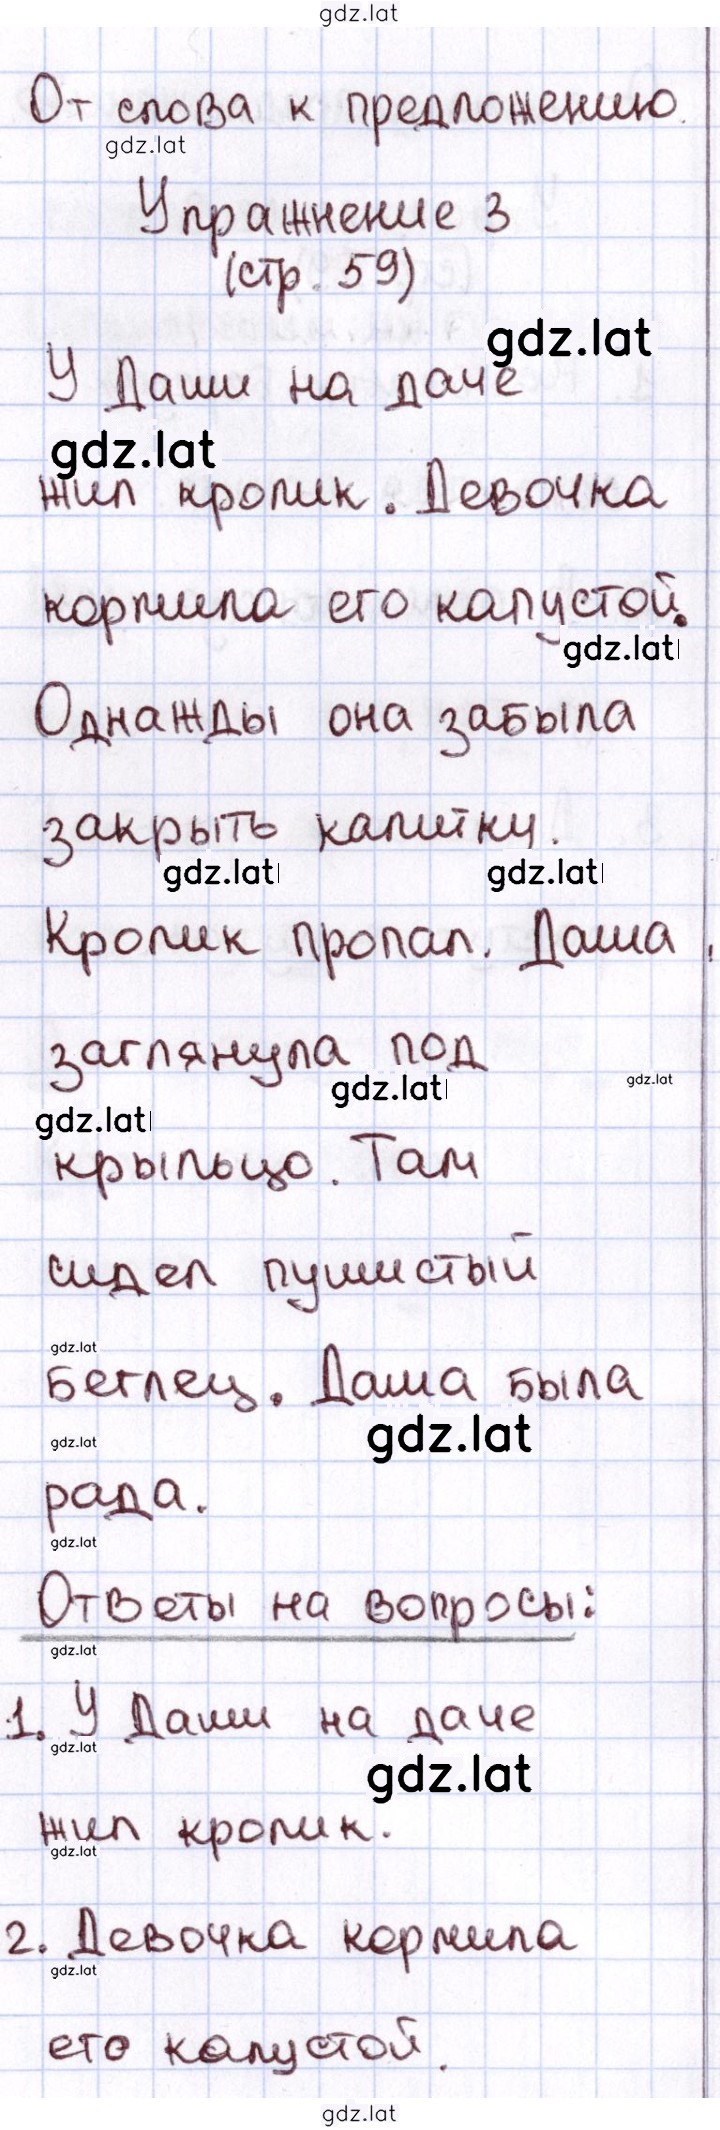 gdz.lat
От слова к предложению.
gdz.lat
Упражнение 3
(стр. 59)
gdz.lat
У Даши на даче
gdz.lat
жил кролик. Девочка
кормила его капустой.
gdz.lat
Однажды она забыла
закрыть калитку.
gdz.lat gdz.lat
Кролик пропал. Даша
заглянула под
gdz.lat gdz.lat
gdz.lat
крыльцо. Там
сидел пушистый
gdz.lat
беглец. Даша была
gdz.lat gdz.lat
рада.
gdz.lat
Ответы на вопросы:
gdz.lat
1. У Даши на даче
gdz.lat gdz.lat
жил кролик.
gdz.lat
2. Девочка кормила
gdz.lat
его капустой.
gdz.lat